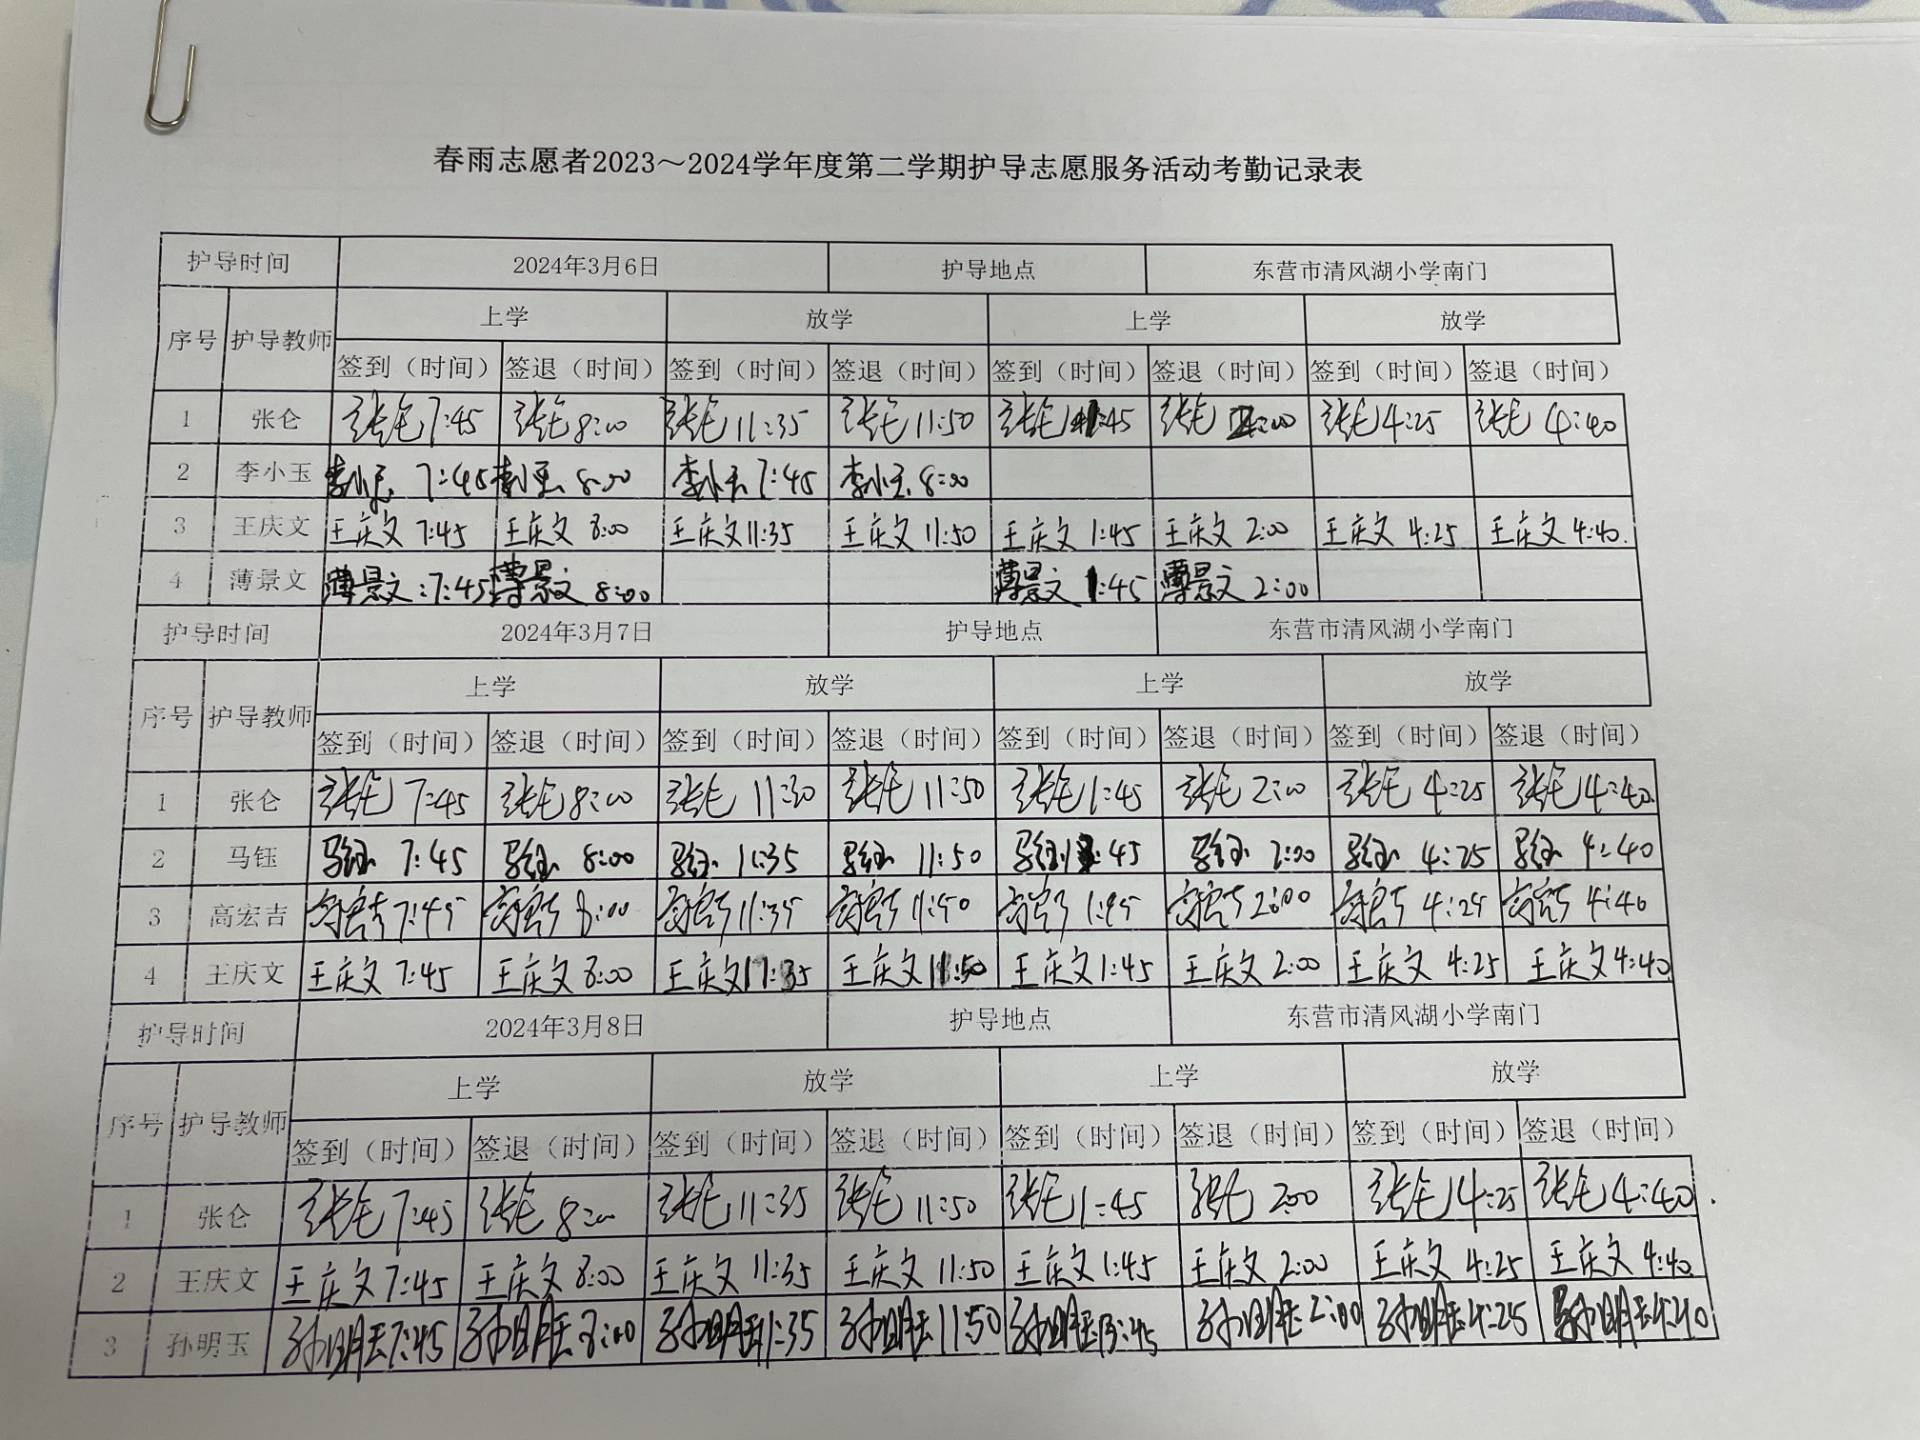 春雨志愿者2023～2024学年度第二学期护导志愿服务活动考勤记录表
护导时间 2024年3月6日 护导地点 东营市清风湖小学南门
序号 护导教师 上学 放学 上学 放学
签到（时间） 签退（时间） 签到（时间） 签退（时间） 签到（时间） 签退（时间） 签到（时间） 签退（时间）
1 张仑 张仑 7:45 张仑 8:00 张仑 11:35 张仑 11:50 张仑 1:45 张仑 2:00 张仑 4:25 张仑 4:40
2 李小玉 李小玉 7:45 李小玉 8:00 李小玉 7:45 李小玉 8:00
3 王庆文 王庆文 7:45 王庆文 8:00 王庆文 11:35 王庆文 11:50 王庆文 1:45 王庆文 2:00 王庆文 4:25 王庆文 4:40.
4 薄景文 薄景文:7:45 薄景文 8:00 薄景文 1:45 薄景文 2:00
护导时间 2024年3月7日 护导地点 东营市清风湖小学南门
序号 护导教师 上学 放学 上学 放学
签到（时间） 签退（时间） 签到（时间） 签退（时间） 签到（时间） 签退（时间） 签到（时间） 签退（时间）
1 张仑 张仑 7:45 张仑 8:00 张仑 11:30 张仑 11:50 张仑 1:45 张仑 2:00 张仑 4:25 张仑 4:40
2 马钰 马钰 7:45 马钰 8:00 马钰 11:35 马钰 11:50 马钰 1:45 马钰 2:00 马钰 4:25 马钰 4:40
3 高宏吉 高宏吉 7:45 高宏吉 8:00 高宏吉 11:35 高宏吉 11:50 高宏吉 1:45 高宏吉 2:00 高宏吉 4:25 高宏吉 4:40
4 王庆文 王庆文 7:45 王庆文 8:00 王庆文 11:35 王庆文 11:50 王庆文 1:45 王庆文 2:00 王庆文 4:25 王庆文 4:40
护导时间 2024年3月8日 护导地点 东营市清风湖小学南门
序号 护导教师 上学 放学 上学 放学
签到（时间） 签退（时间） 签到（时间） 签退（时间） 签到（时间） 签退（时间） 签到（时间） 签退（时间）
1 张仑 张仑 7:45 张仑 8:00 张仑 11:35 张仑 11:50 张仑 1:45 张仑 2:00 张仑 4:25 张仑 4:40.
2 王庆文 王庆文 7:45 王庆文 8:00 王庆文 11:35 王庆文 11:50 王庆文 1:45 王庆文 2:00 王庆文 4:25 王庆文 4:40
3 孙明玉 孙明玉 7:45 孙明玉 8:00 孙明玉 11:35 孙明玉 11:50 孙明玉 13:45 孙明玉 2:00 孙明玉 4:25 孙明玉 4:40